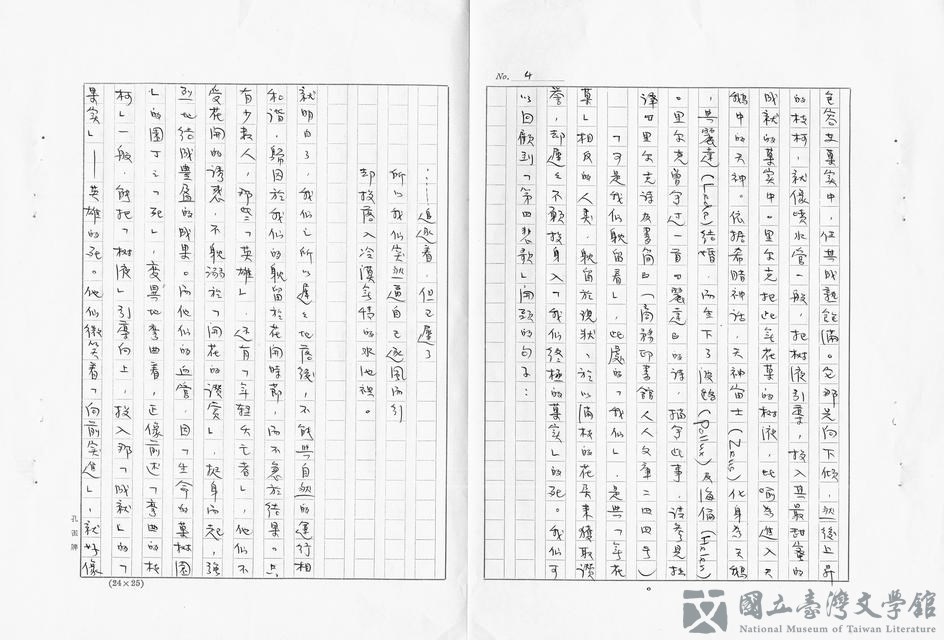 No. 4
包容在菓實中,任其成熟飽滿。它那是向下傾,然後上昇
的枝柯,就像噴水管一般,把樹液引導,投入其最甜蜜的
成就的菓實中。里尔克把此無花菓的樹液,比喻為進入天
鵝中的天神。依據希腊神話,天神宙士(Zeus)化身為天鵝
,與麗達(Leda)結婚,而生下了波路(Pollux)及海倫(Helen)
。里尔克曾寫过一首「麗達」的詩,描寫此事,請參見拙
譯「里尔克詩及書簡」(商務印書館人人文庫二四四号)。
「可是我們耽留着」,此處的「我們」,是與「無花
菓」相反的人类,耽留於現狀、於以滿枝的花朵来獲取讚
譽,却遲々不願投身入「我們終極的菓实」的死。我們可
以回顧到「第四悲歌」開頭的句子:
……追逐着,但已遲了
所以我們突然逼自己逐風而引
却投落入冷漠無情的水池裡。
就明白了,我們之所以遲々地落後,不能與自然的運行相
和諧,歸因於我們的耽留於花開時節,而不急於結果。只
有少数人,那些「英雄」,还有「年輕夭亡者」,他們不
受花開的誘惑,不耽溺於「開花的讚賞」,挺身而起,强
烈地結成豊盈的成果。而他們的血管,因「生命的菓樹園
」的園丁之「死」,变異地弯曲着,正像前述「弯曲的枝
柯」一般,能把「樹液」引導向上,投入那「成就」的「
果实」——英雄的死。他們微笑着「向前突進」,就好像
孔雀牌
(24×25)
國立臺灣文學館
National Museum of Taiwan Literature